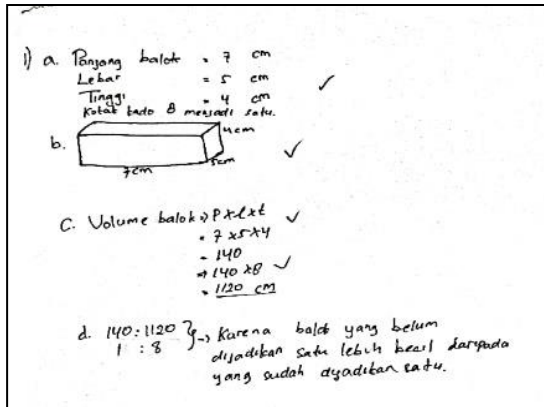 1) a. Panjang balok = 7 cm
Lebar = 5 cm
Tinggi = 4 cm
Kotak kado 8 menjadi satu.
b.
4cm
5cm
7cm
c. Volume balok => P x l x t
= 7 x 5 x 4
= 140
=> 140 x 8
= 1120 cm
d. 140 : 1120 } -> Karena balok yang belum
1 : 8
dijadikan satu lebih kecil daripada
yang sudah dijadikan satu.